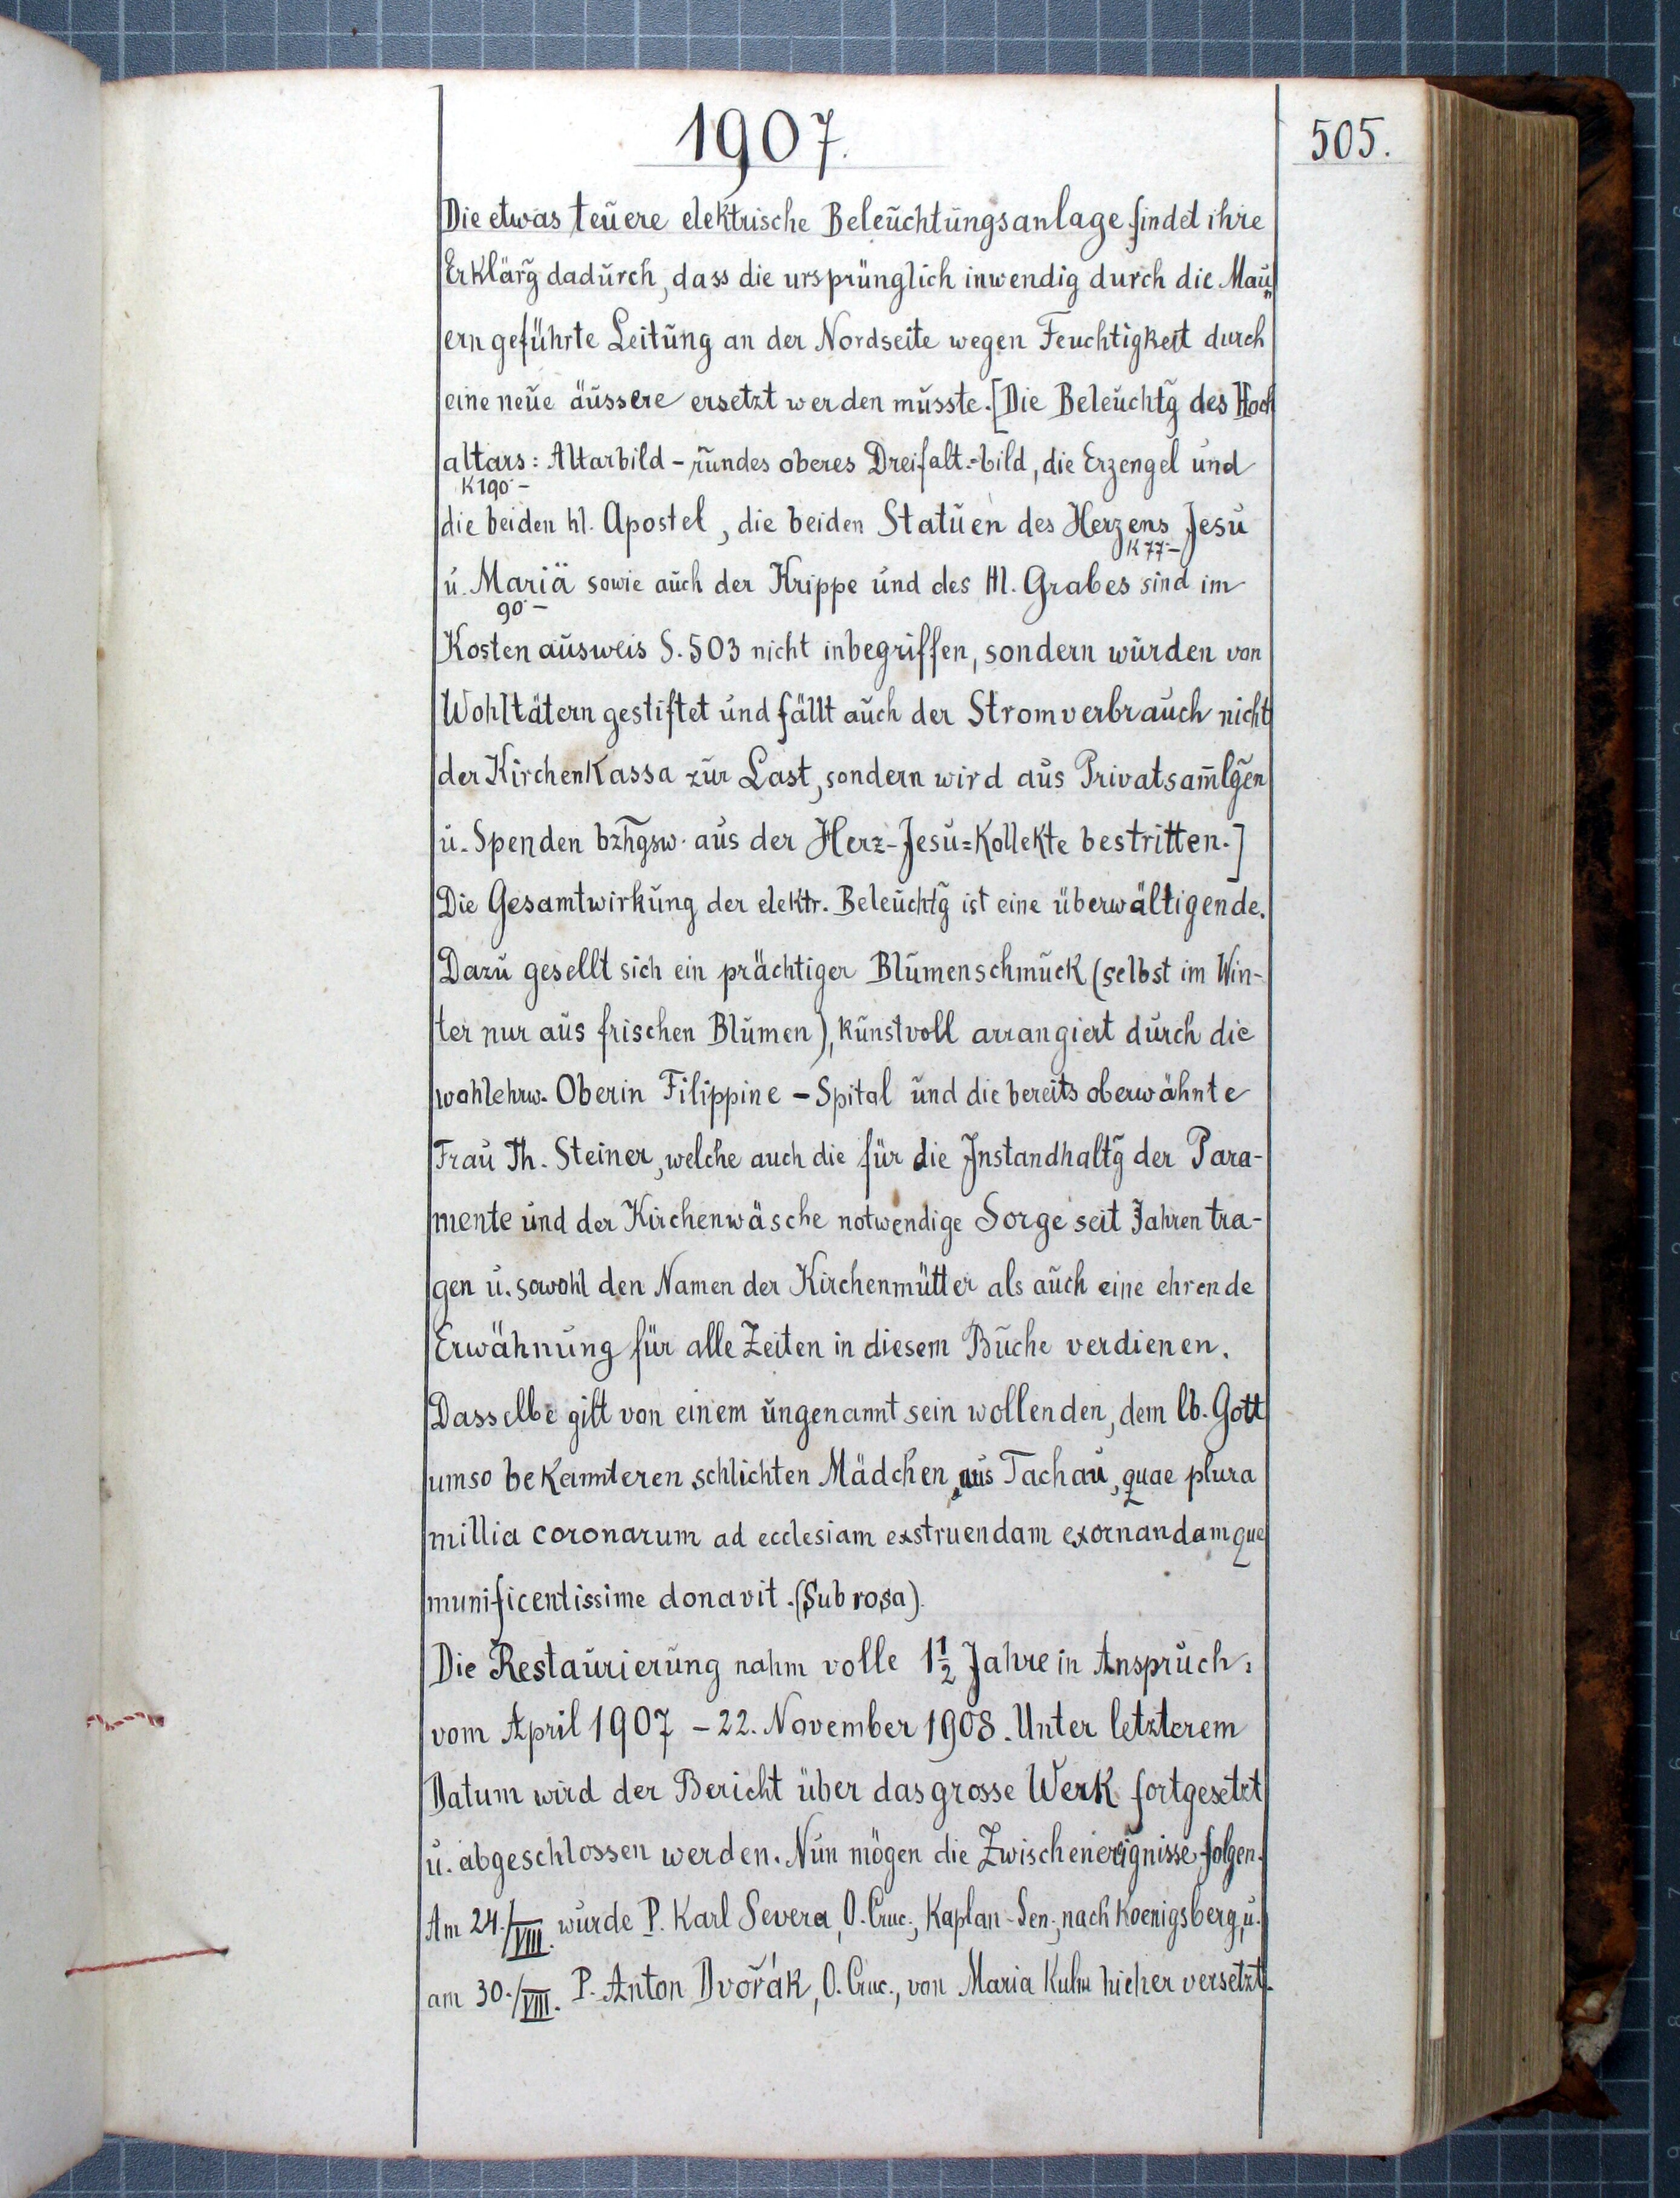 1907.
505.
Die etwas teuere elektrische Beleuchtungsanlage findet ihre
Erklärg̃ dadurch, dass die ursprünglich inwendig durch die Mau„
ern geführte Leitung an der Nordseite wegen Feuchtigkeit durch
eine neue äussere ersetzt werden musste. [Die Beleuchtg̃ des Hoch
altars: Altarbild - rundes oberes Dreifalt.=bild, die Erzengel und
K 190·-
die beiden hl. Apostel, die beiden Statuen des Herzens Jesu
K 77·-
u. Mariä sowie auch der Krippe und des Hl. Grabes sind im
90·-
Kostenausweis S. 503 nicht inbegriffen, sondern wurden von
Wohltätern gestiftet und fällt auch der Stromverbrauch nicht
der Kirchenkassa zur Last, sondern wird aus Privatsam̃lg̃en
u. Spenden bzhg̃sw. aus der Herz-Jesu=Kollekte bestritten.]
Die Gesamtwirkung der elektr. Beleuchtg̃ ist eine überwältigende.
Dazu gesellt sich ein prächtiger Blumenschmuck (selbst im Win-
ter nur aus frischen Blumen), kunstvoll arrangiert durch die
wohlehrw. Oberin Filippine - Spital und die bereits oberwähnte
Frau Th. Steiner, welche auch die für die Instandhaltg̃ der Para-
mente und der Kirchenwäsche notwendige Sorge seit Jahren tra-
gen u. sowohl den Namen der Kirchenmütter als auch eine ehrende
Erwähnung für alle Zeiten in diesem Buche verdienen.
Dasselbe gilt von einem ungenannt sein wollenden, dem lb. Gott
umso bekannteren schlichten Mädchen aus Tachau, quae plura
millia coronarum ad ecclesiam exstruendam exornandamque
munificentissime donavit. (Sub rosa).
Die Restaurierung nahm volle 1½ Jahre in Anspruch:
vom April 1907 - 22. November 1908. Unter letzterem
Datum wird der Bericht über das grosse Werk fortgesetzt
u. abgeschlossen werden. Nun mögen die Zwischenereignisse folgen.
Am 24./VIII. wurde P. Karl Severa, O. Cruc., Kaplan-Sen., nach Koenigsberg, u.
am 30./VIII. P. Anton Dvořák, O. Cruc., von Maria Kulm hieher versetzt.